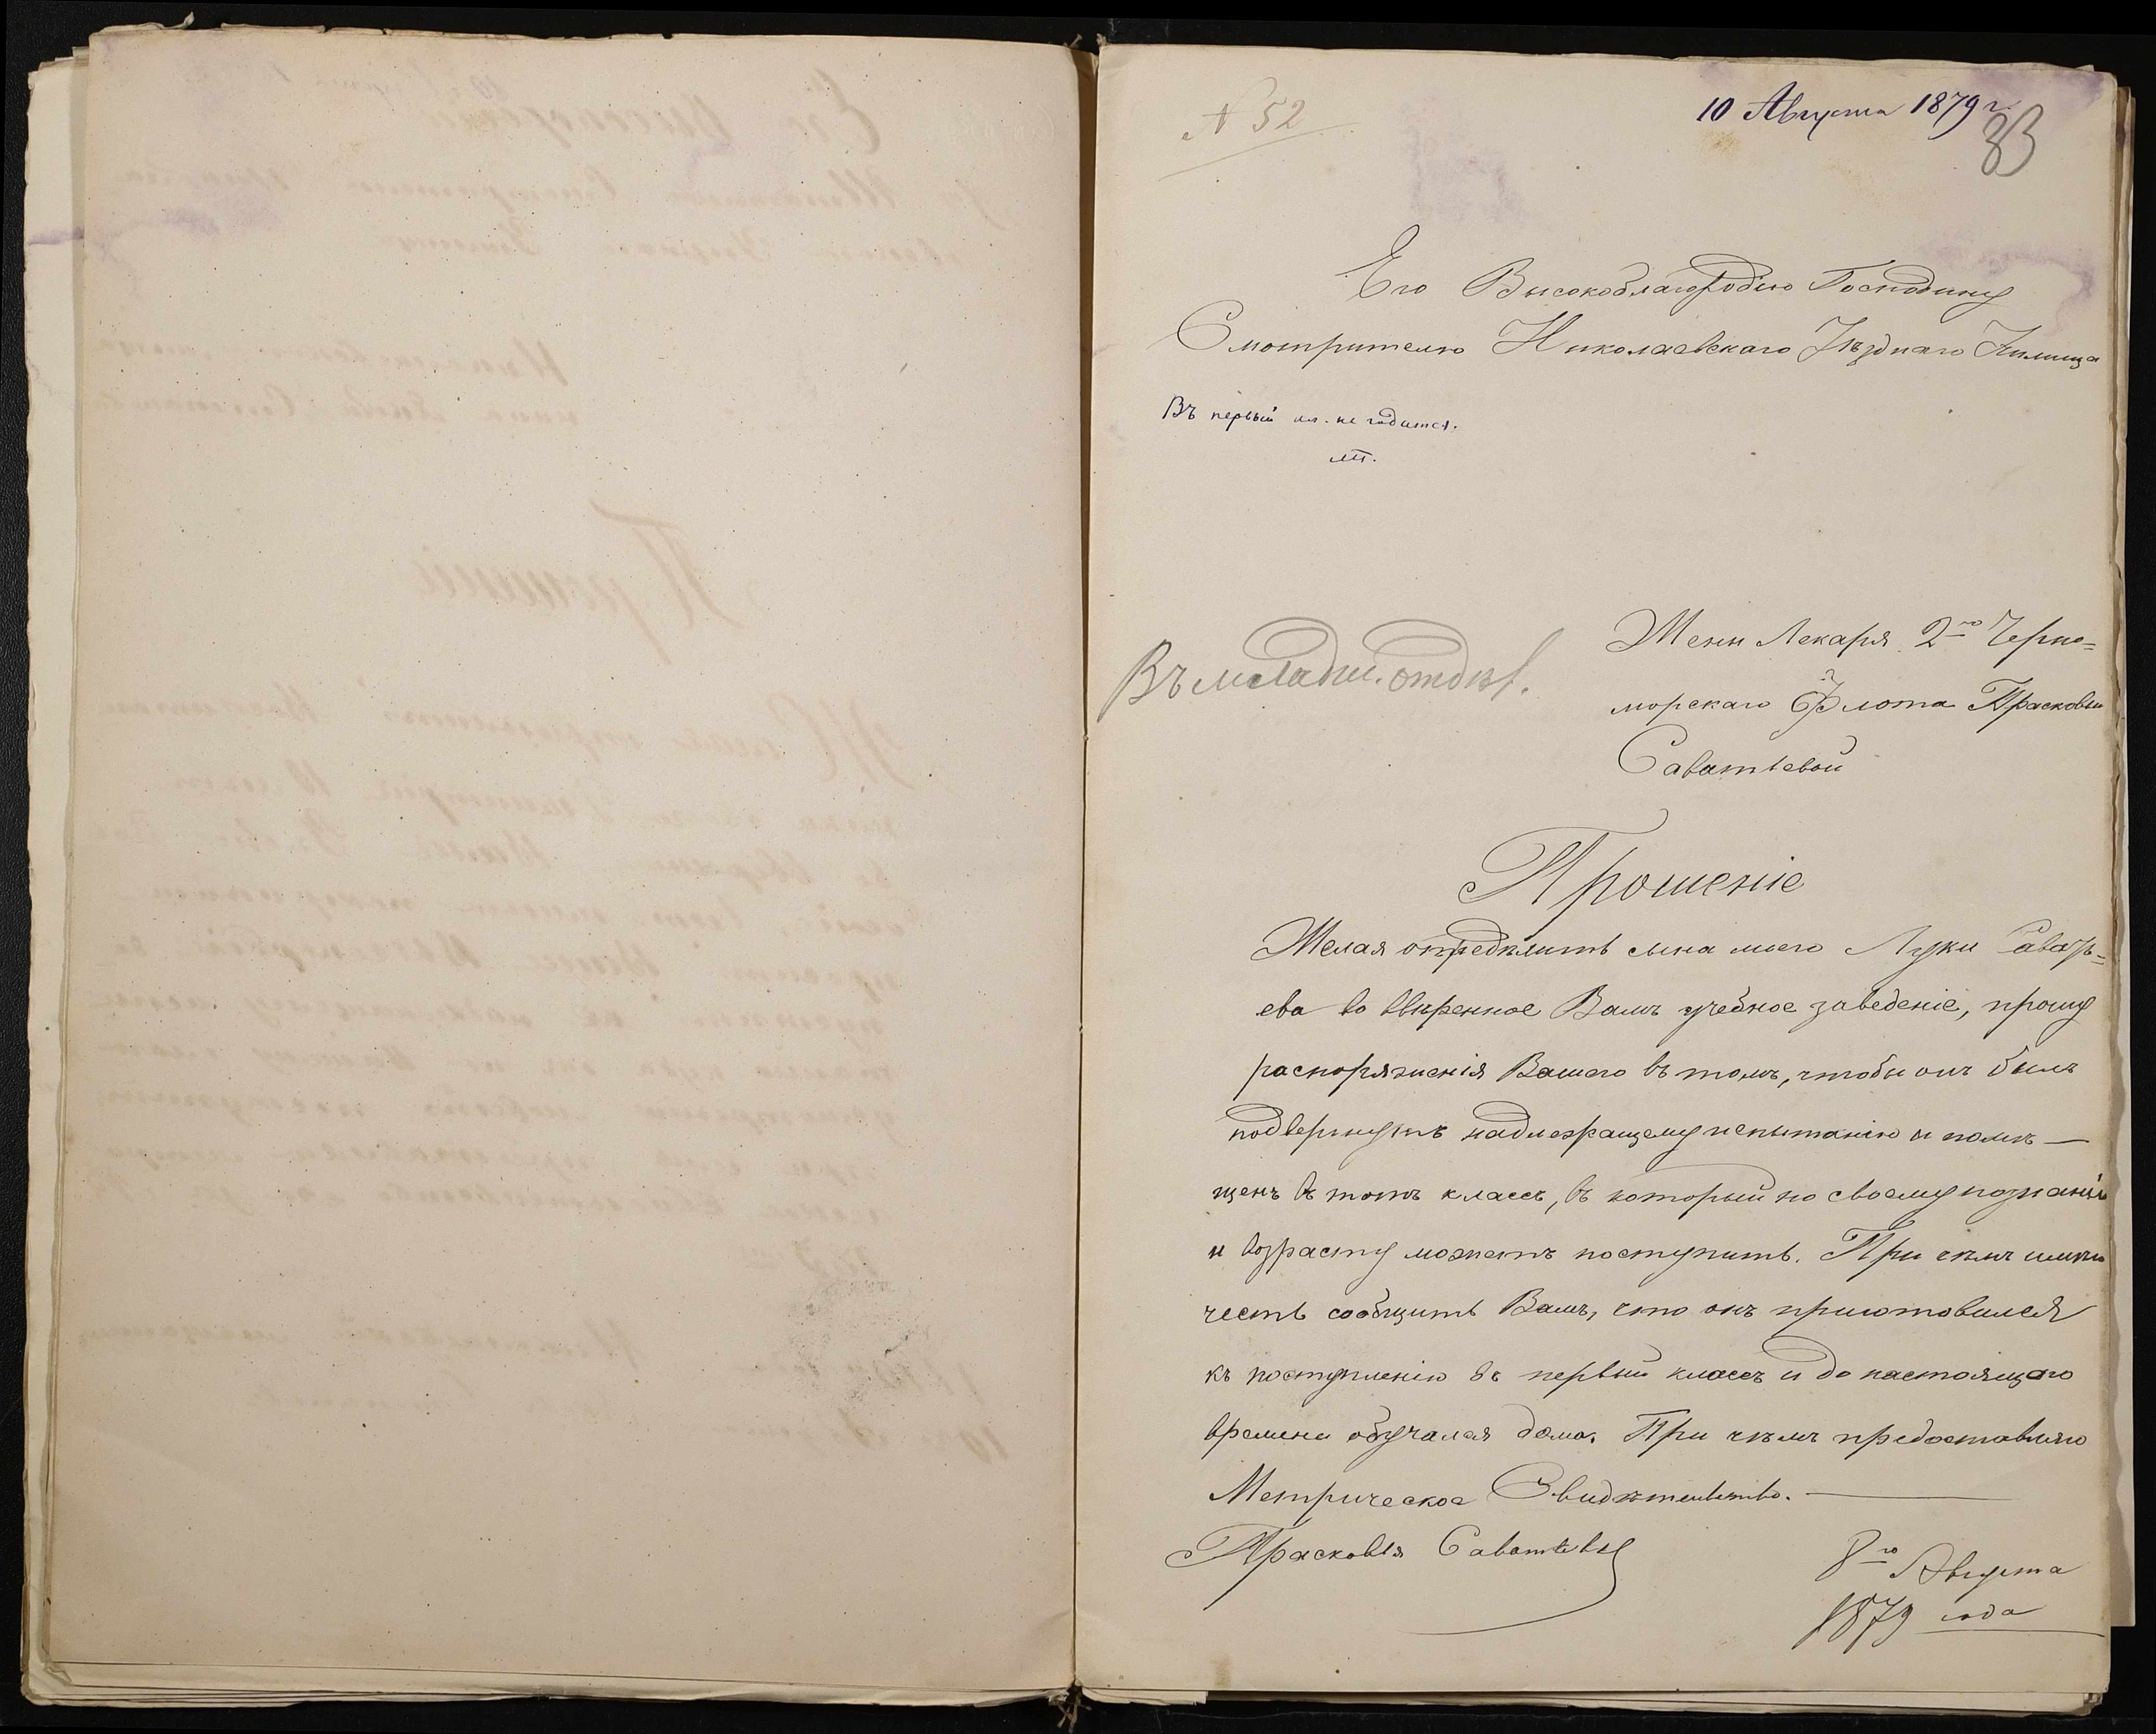 N 52
10 Августа 1879 г.
83
Его Высокоблагородію Господину
Смотрителю Николаевскаго Уѣзднаго Училища
Въ первый кл. не годится.
Въ младш. отдѣл.
Жены Лекаря 2го Черно=
морскаго Флота Прасковьи
Саватьевой
Прошеніе
Желая опредѣлить сына моего Луки Савать=
ева во ввѣренное Вамъ учебное заведеніе, прошу
распоряженія Вашего въ томъ, чтобы онъ былъ
подвергнутъ надлежращему испытанію и помѣ—
щенъ въ тотъ классъ, въ который по своему познанію
и возрасту можетъ поступить. При чемъ имѣю
честь сообщить Вамъ, что онъ приготовился
къ поступленію въ первый классъ и до настоящаго
времени обучался дома. При чѣмъ предоставляю
Метрическое Свидѣтельство.
Прасковья Саватьева
8го Августа
1879 года